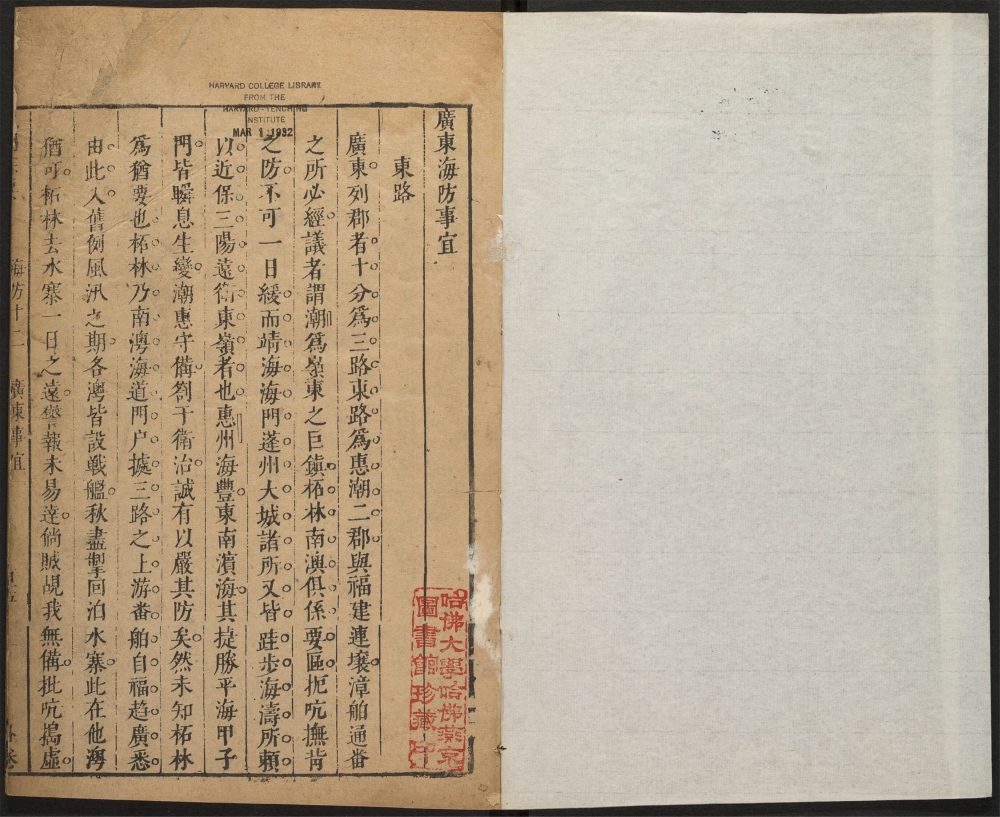 HARVARD COLLEGE LIBRARY
FROM THE
HARVARD-YENCHING
INSTITUTE
MAR 1 1932
廣東海防事宜
東路
廣東列郡者十分為三路東路為惠潮二郡與福建連壤漳舶通番
之所必經議者謂潮為嶺東之巨鎮柘林南澳俱係要區扼吭撫背
之防不可一日緩而靖海海門蓬州大城諸所又皆跬步海濤所賴
以近保三陽遠衛東嶺者也惠州海豐東南濱海其捷勝平海甲子
門皆瞬息生變潮惠守備劄于衛治誠有以嚴其防矣然未知柘林
為猶要也柘林乃南澳海道門户據三路之上游番舶自福趨廣悉
由此入舊例風汛之期各澳皆設戰艦秋盡掣回泊水寨此在他澳
猶可柘林去水寨一日之遠警報未易達倘賊覘我無備批吭搗虛
海防十二
廣東事宜
哈佛大學哈佛燕京
圖書館珍藏印